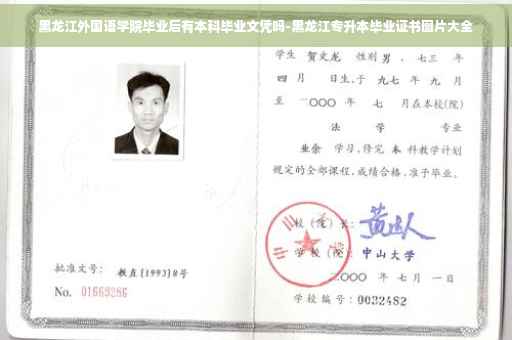 黑龙江外国语学院毕业后有本科毕业文凭吗-黑龙江专升本毕业证书图片大全
学生 贺文龙 性别 男 、七三 年
四 月 日生,于 九七 年 九 月
至 二〇〇〇 年 七 月在本校(院)
法 学 专业
业余 学习,修完 本 科教学计划
规定的全部课程,成绩合格,准予毕业。
校(院)长:
学 校(院): 中山大学
二〇〇〇 年 七 月 一日
学校编号:0032482
批准文号: 教直[1993]8号
No. 01669286